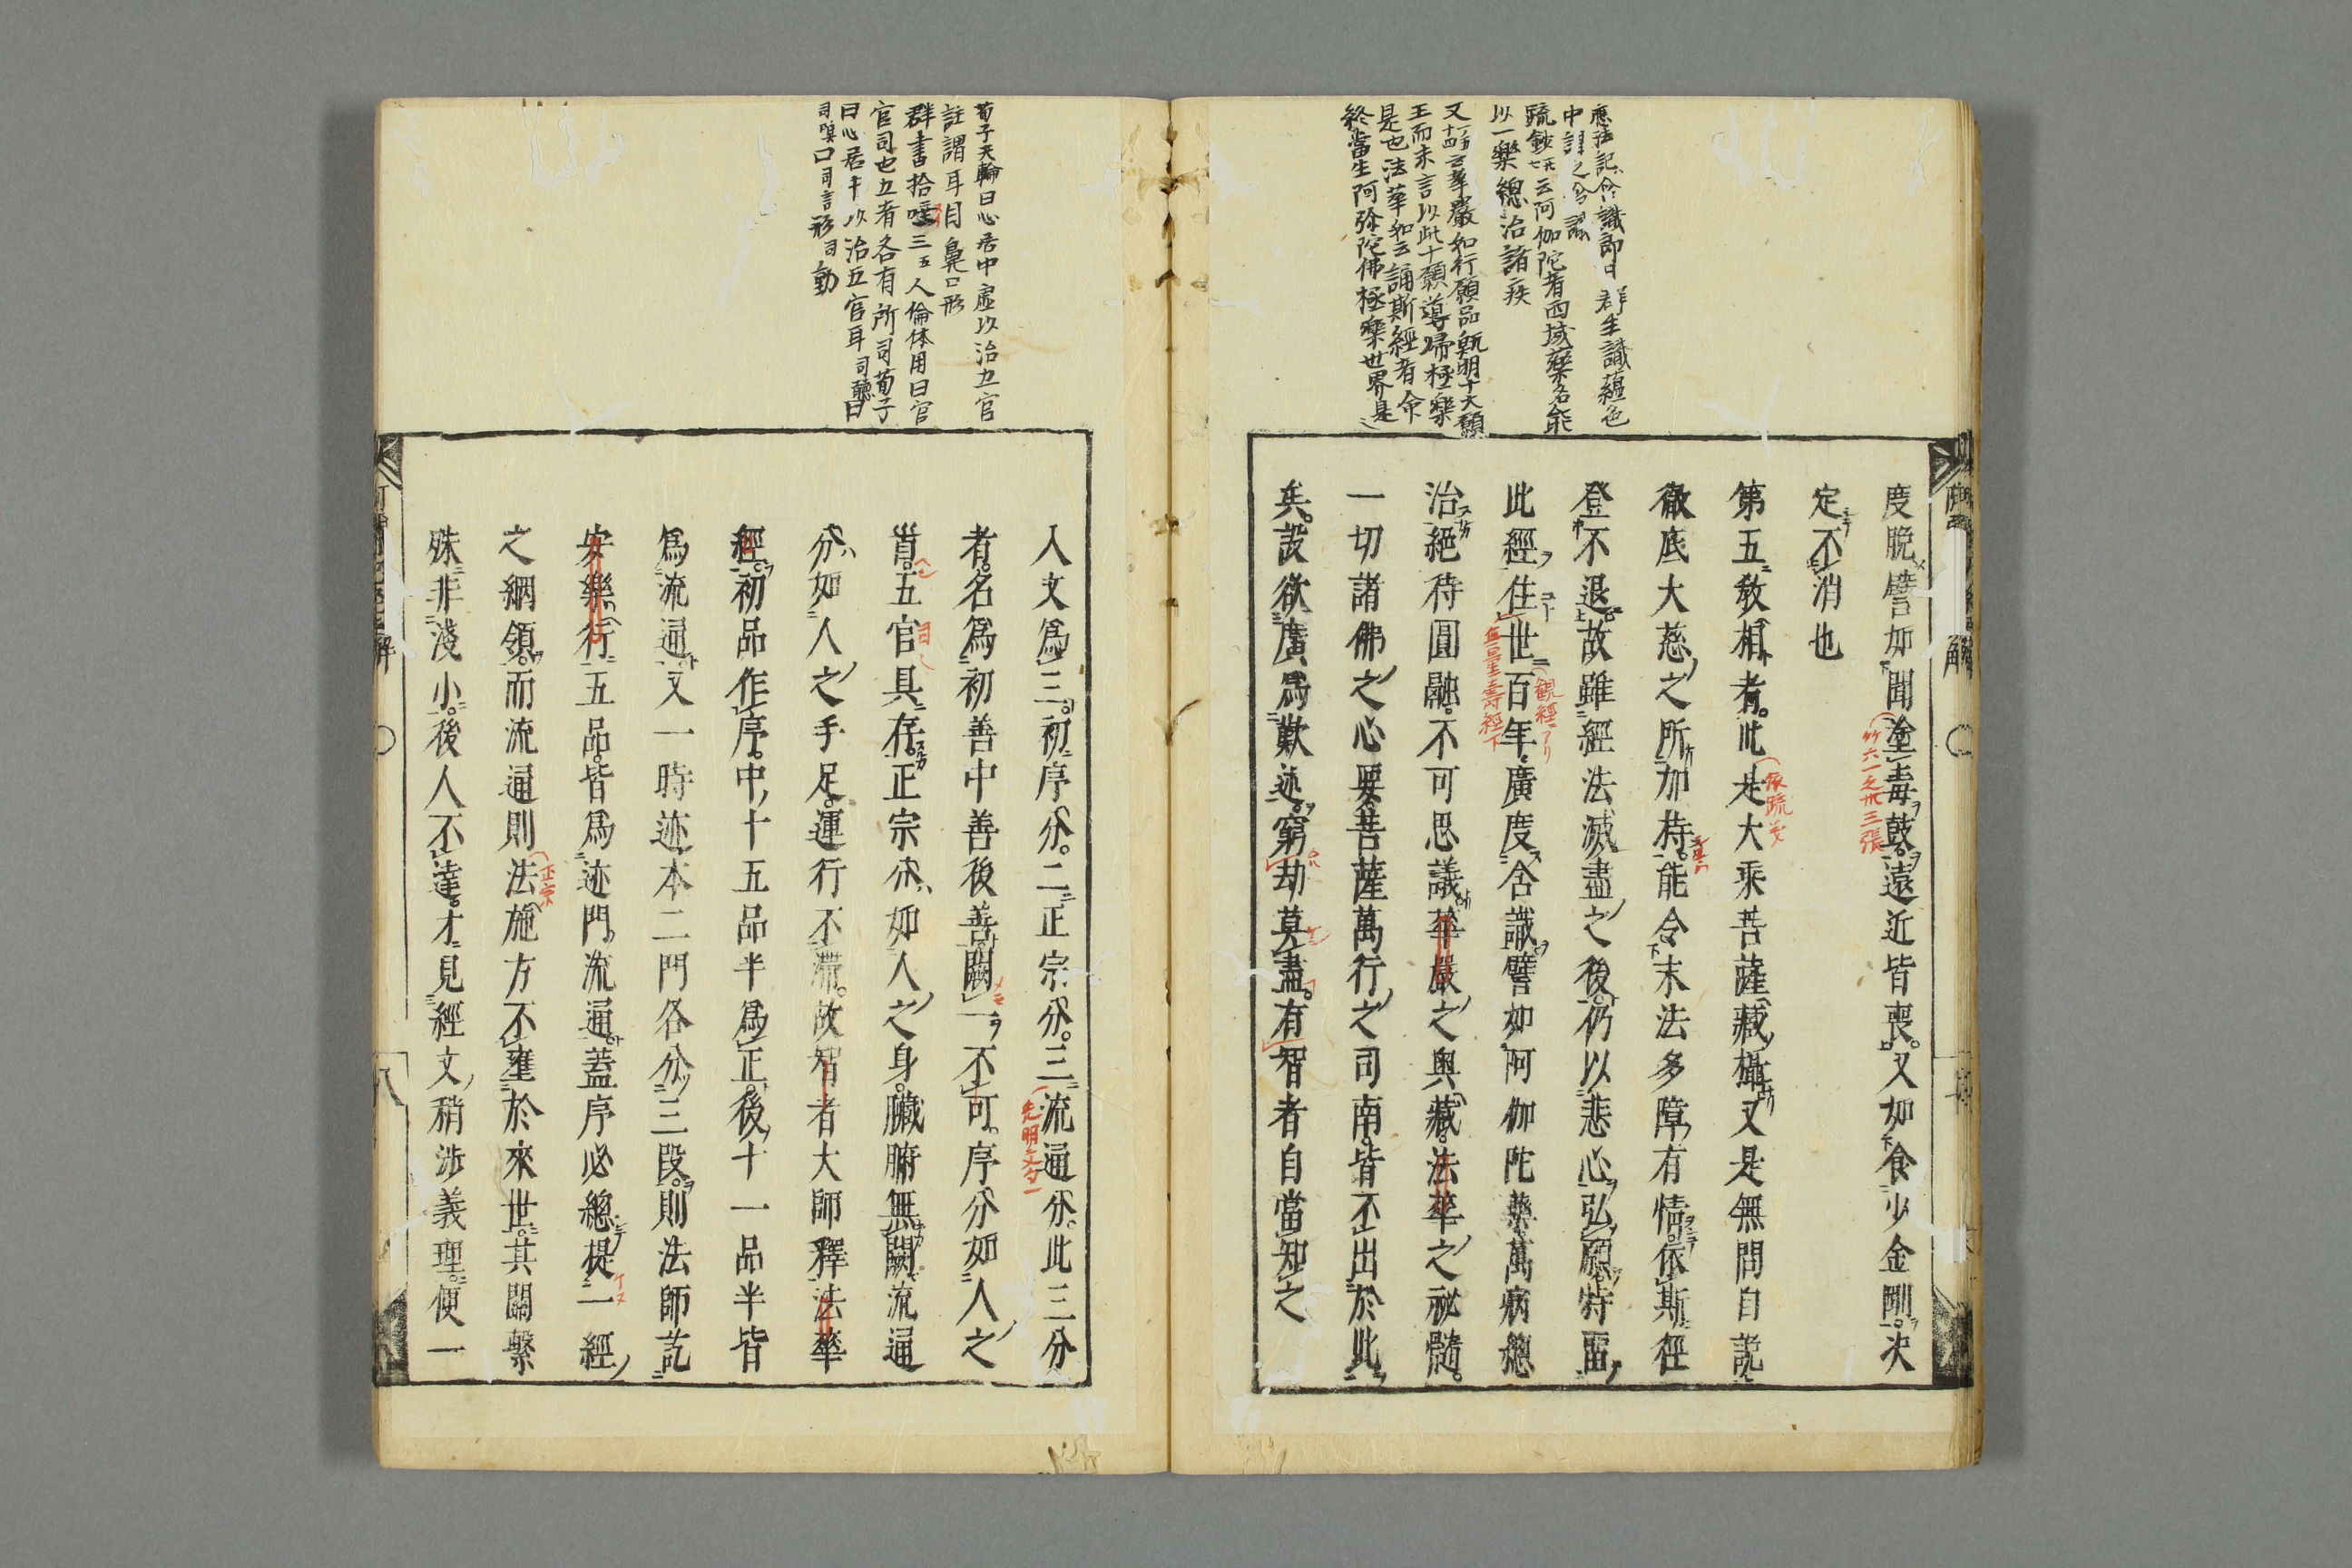 應法記令識即日群生識蘊色
中謂之
疏鈔云阿伽陀者西域藥名能
以一藥總治諸疾
又云華嚴如行願品既明十大願
王而末言以此十願導歸極樂
是也法華如云誦斯經者命
終當生阿弥陀佛極樂世界是
度脫譬如聞塗毒鼓遠近皆喪又如食少金剛決
定不消也
第五教相者此是大乘菩薩藏攝又是無問自說
徹底大慈之所加持能令末法多障有情依斯經
登不退故雖經法滅盡之後仍以悲心弘願特留
此經住世百年廣度含識譬如阿伽陀藥萬病總
治絕待圓融不可思議華嚴之與藏法華之祕髓
一切諸佛之心要菩薩萬行之司南皆不出於此
矣設欲廣為歎述窮劫莫盡有智者自當知之
竹六一之卅三張
依疏美
觀經ニアリ
無量壽經下
荀子天輪曰心居中虛以治五官
註謂耳目鼻口形
群書拾唾三五人倫体用曰官
官司也五者各有所司荀子
曰心居中以治五官耳司聽目
司嗅口司言形司動
入文為三初序分二正宗分三流通分此三分
者名為初善中善後善闕一不可序分如人之
首五官具存正宗分如人之身臟腑無闕流通
分如人之手足運行不滯故智者大師釋法華
經初品作序中十五品半為正後十一品半皆
為流通又一時迹本二門各分三段則法師訖
安樂行五品皆為迹門流通蓋序必總提一經
之綱領而流通則法施方不壅於來世其關繫
殊非淺小後人不達才見經文稍涉義理便一
正宗
八